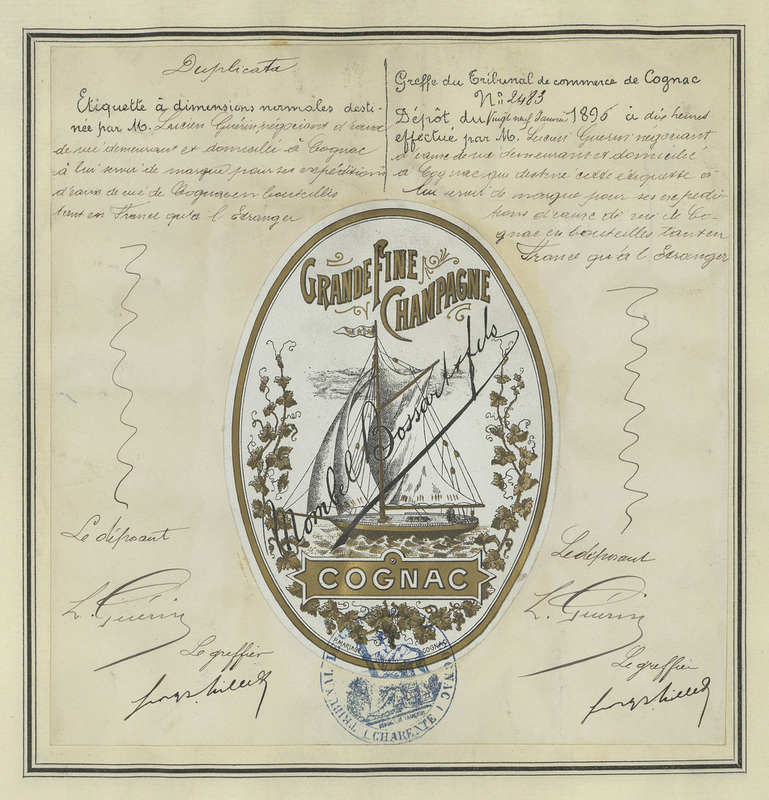 Duplicata
Etiquette à dimensions normales desti-
née par M. Lucien Guérin négociant d'eaux
de vie demeurant et domicilié à Cognac
à lui servir de marque pour ses expéditions
d'eaux de vie de Cognac en bouteilles
tant en France qu'à l'Etranger
Greffe du Tribunal de commerce de Cognac
No 2483
Dépôt du Vingt neuf Janvier 1896 à dix heures
effectué par M. Lucien Guérin négociant
d'eaux de vie demeurant et domicilié
à Cognac qui destine cette étiquette à
lui servir de marque pour ses expédi-
tions d'eaux de vie de Co-
gnac en bouteilles tant en
France qu'à l'Etranger
GRANDE FINE
CHAMPAGNE
Bossart & fils
COGNAC
COGNAC
Le déposant
L. Guérin
Le greffier
Le déposant
L. Guérin
Le greffier
TRIBUNAL
COGNAC
(CHARENTE)